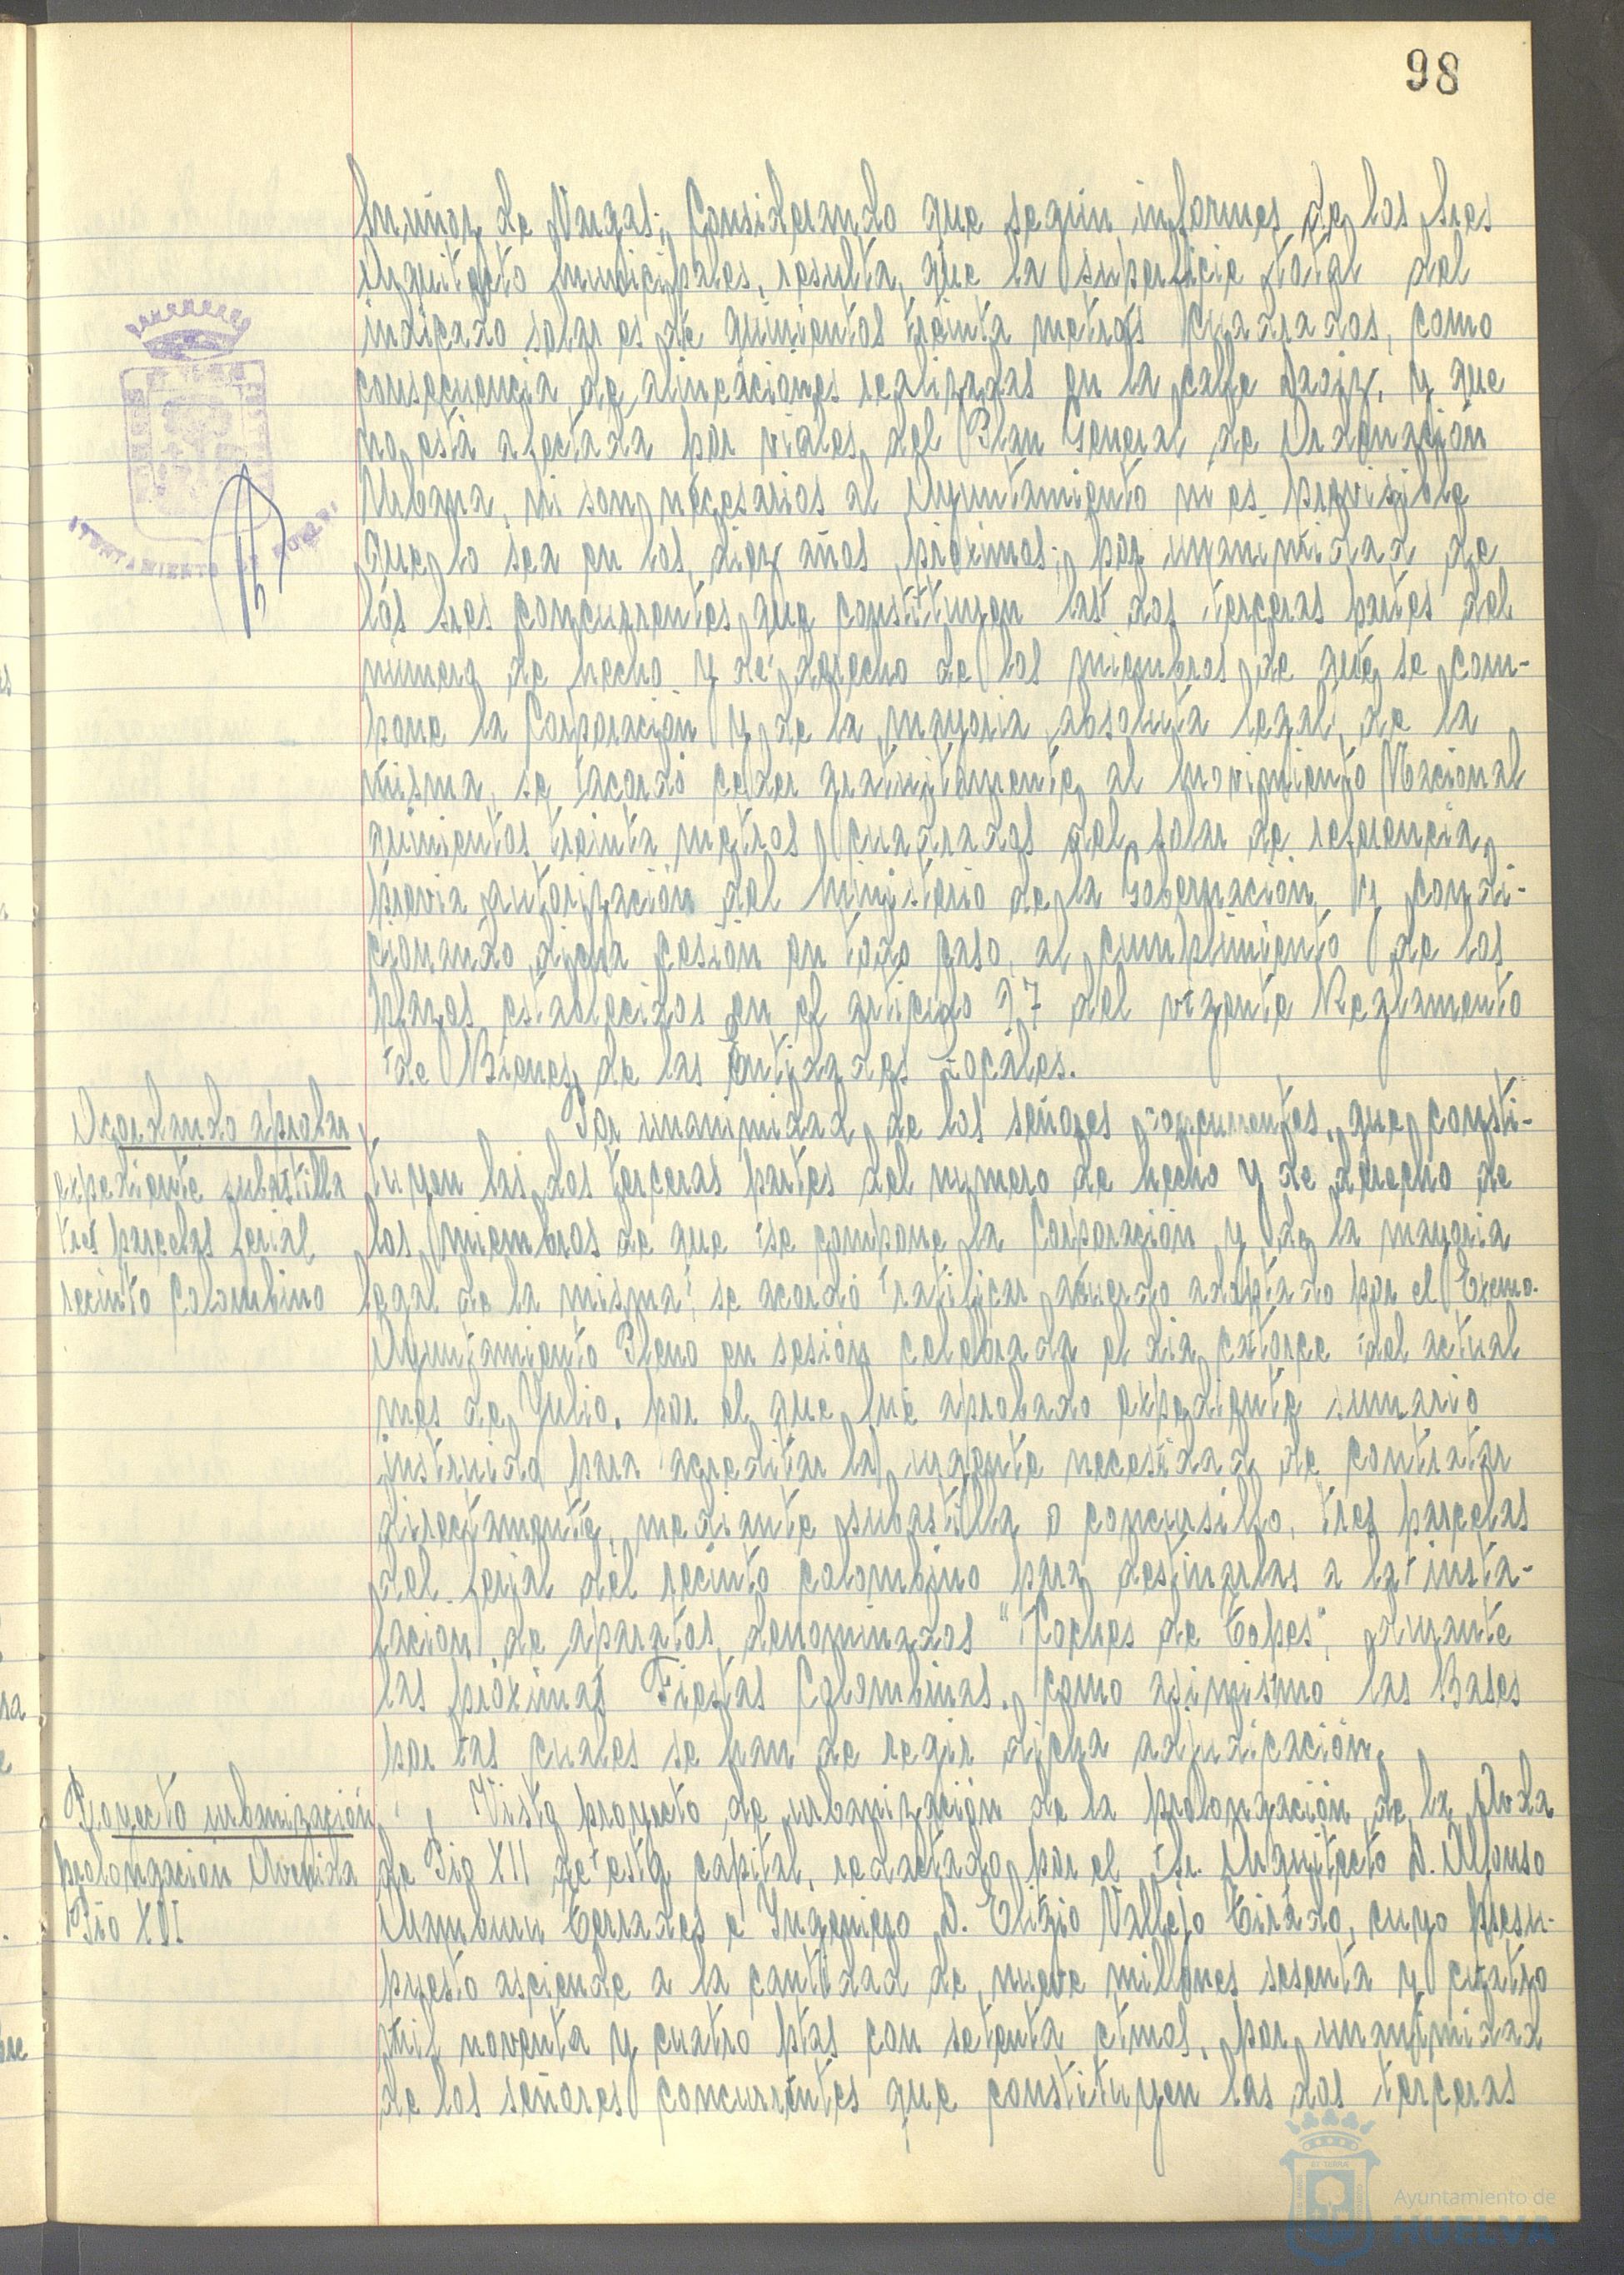 98
Muñoz de Vargas; Considerando que según informes de los Sres
Arquitecto Municipales, resulta, que la superficie total del
indicado solar es de quinientos treinta metros cuadrados, como
consecuencia de alineaciones realizadas en la calle Daoiz, y que
no está afectada por viales del Plan General de Ordenación
Urbana, ni son necesarios al Ayuntamiento ni es previsible
que lo sea en los diez años próximos; por unanimidad de
los Sres concurrentes que constituyen las dos terceras partes del
número de hecho y de derecho de los miembros de que se com-
pone la Corporación y de la mayoria absoluta legal de la
misma, se acordó ceder gratuitamente al Movimiento Nacional
quinientos treinta metros cuadrados del solar de referencia,
previa autorización del Ministerio de la Gobernación y condi-
cionando dicha cesión en todo caso, al cumplimiento de los
plazos establecidos en el articulo 97 del vigente Reglamento
de Bienes de las Entidades Locales.
Acordando aprobar
expediente subastilla
tres parcelas ferial
recinto Colombino
Por unanimidad de los señores concurrentes, que consti-
tuyen las dos terceras partes del numero de hecho y de derecho de
los miembros de que se compone la Corporación y de la mayoria
legal de la misma, se acordó ratificar acuerdo adoptado por el Excmo.
Ayuntamiento Pleno en sesión celebrada el dia catorce del actual
mes de Julio, por el que fué aprobado expediente sumario
instruido para acreditar la urgente necesidad de contratar
directamente, mediante subastilla o concursillo, tres parcelas
del ferial del recinto colombino para destinarlas a la insta-
lación de aparatos, denominados "Coches de Topes", durante
las próximas Fiestas Colombinas, como asimismo las Bases
por las cuales se han de regir dicha adjudicación.
Proyecto urbanización
prolongación Avenida
Pio XII
Visto proyecto de urbanización de la prolongación de la Avda
de Pio XII de esta capital, redactado por el Sr. Arquitecto D. Alfonso
Aramburu Terrades e Ingeniero D. Eligio Vallejo Tirado, cuyo presu-
puesto asciende a la cantidad de nueve millones sesenta y cuatro
mil noventa y cuatro ptas con setenta ctmos, por unanimidad
de los señores concurrentes que constituyen las dos terceras
AYUNTAMIENTO DE HUELVA
Ayuntamiento de
HUELVA